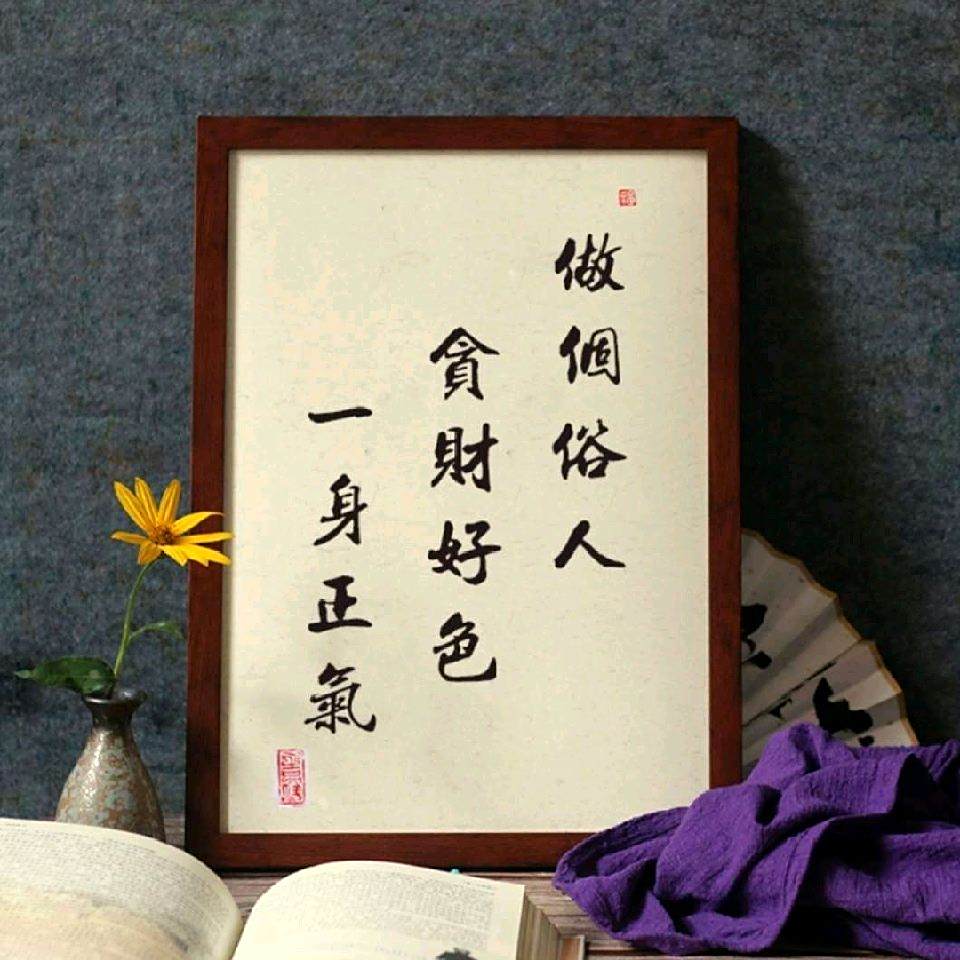 做個俗人
貪財好色
一身正氣